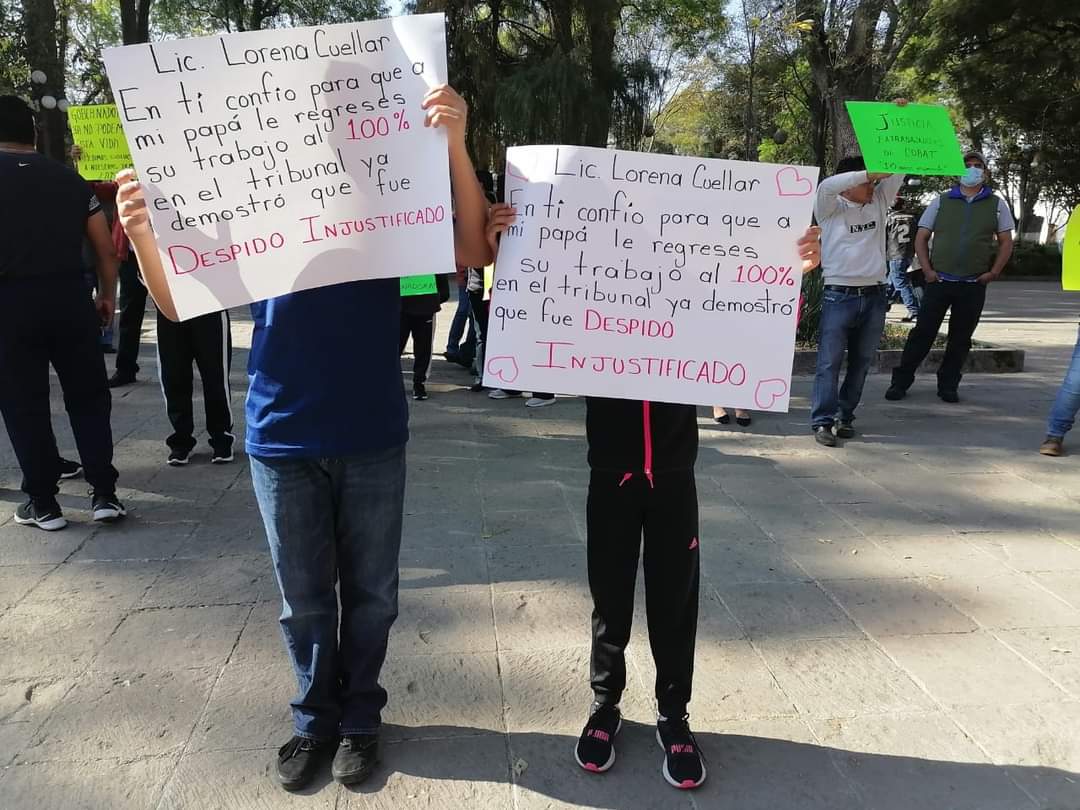 Lic. Lorena Cuellar
En ti confio para que a
mi papá le regreses
su trabajo al 100%
en el tribunal ya
demostró que fue
DESPIDO INJUSTIFICADO
Lic. Lorena Cuellar
En ti confio para que a
mi papá le regreses
su trabajo al 100%
en el tribunal ya demostró
que fue DESPIDO
INJUSTIFICADO
JUSTICIA
DE COBAT
YA NO PODEM
STA VIDA
N.Y.C.
PUMA
PUMA